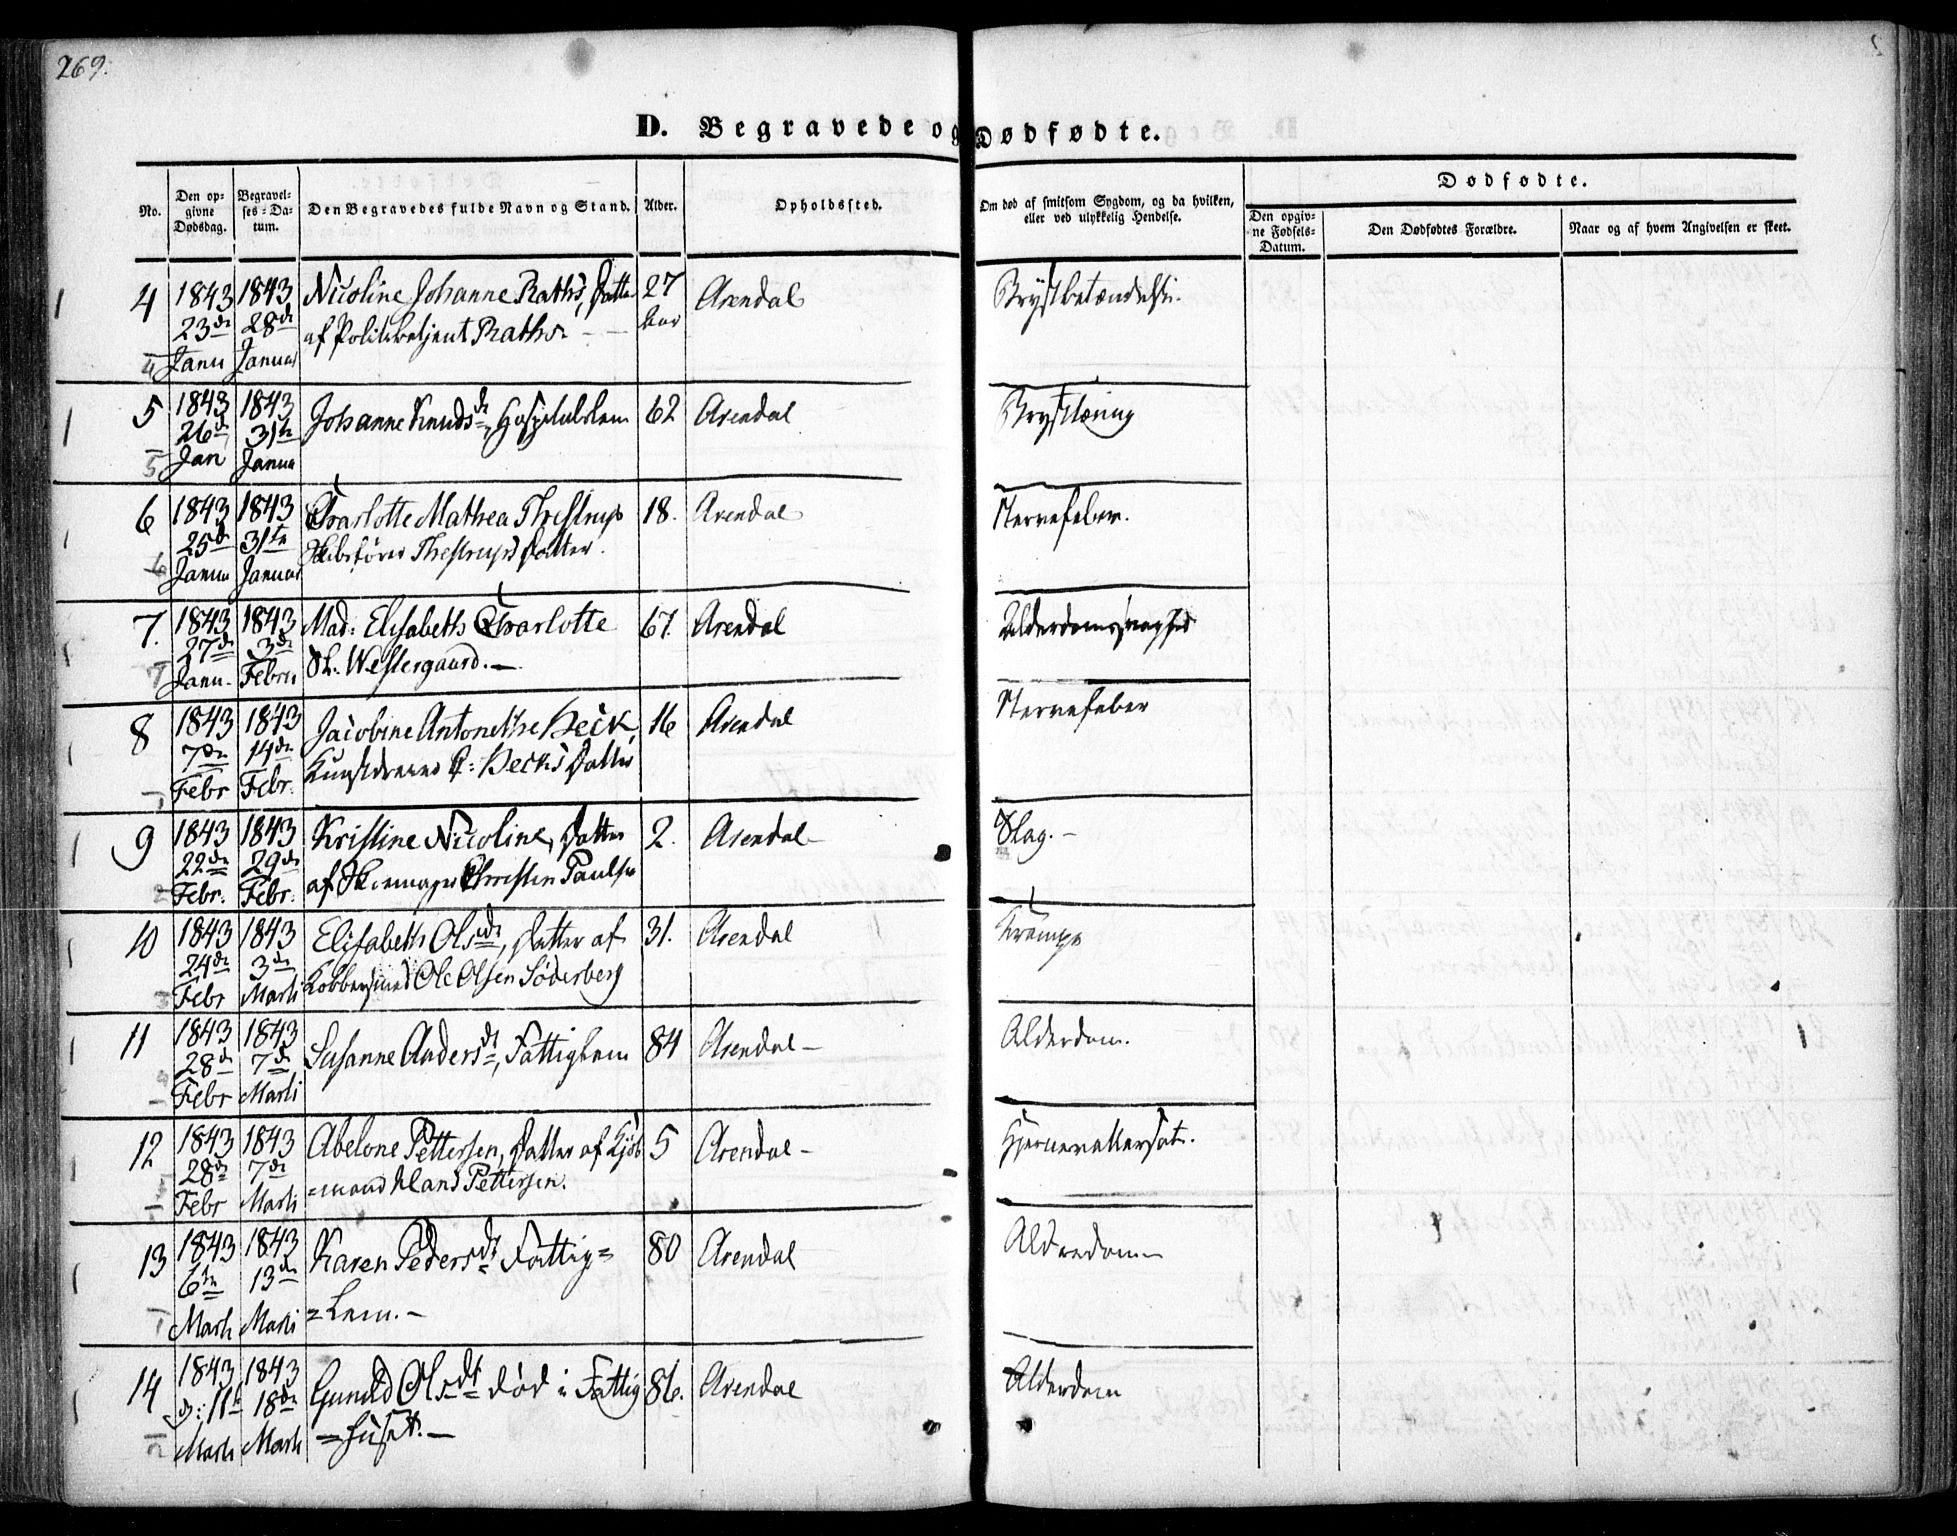 269.
D. Begravede og Dødfødte.
No. Den opgivne Dødsdag. Begravelses-Datum. Den Begravedes fulde Navn og Stand. Alder. Opholdssted. Om død af smitsom Sygdom, og da hvilken, eller ved ulykkelig Hendelse. Dødfødte. Den opgivne Fødsels-Datum. Den Dødfødtes Forældre. Naar og af hvem Angivelsen er skeet.
4 1843 1843 Nicoline Johanne Raths, Datter 27 Arendal Brystbetændelse.
23de 28de af Politibetjent Raths Aar
Janu Januar
5 1843 1843 Johanne Knudsdr, Hospitalslem 62 Arendal Brysttæring
26de 31te
Jan Janua
6 1843 1843 Charlotte Mathea Thestrup 18. Arendal Nervefeber.
25de 31te Skibsfører Thestrups Datter.
Janu Januar
7. 1843 1843 Mad: Elisabeth Charlotte 67. Arendal Alderdomssvaghed
27de 3de Sl. Westergaard.
Janu. Febru
8 1843 1843 Jacobine Antonethe Heck 16 Arendal Nervefeber
7de 14de Hecks Datter
Febr Febr.
9 1843 1843 Kristine Nicoline, Datter 2. Arendal Slag.
22de 29de af Skomager Christen Paulsen
Febr. Febr.
10 1843 1843 Elisabeth Olsdr, Datter af 31. Arendal Krampe
24de 3de Kobbersmed Ole Olsen Söderberg
Febr Marti
11 1843 1843 Susanne Andersdt, Fattiglem 84 Arendal Alderdom.
28de 7de
Febr Marti
12 1843 1843 Abelone Pettersen, Datter af Kjøb 5 Arendal
28de 7de =mand Hans Pettersen.
Febr Marti
13 1843 1843 Karen Pedersdt Fattig= 80 Arendal Alderdom
6te 13de =Lem.
Marti Marti
14 1843 1843 Gunild Olsdt død i Fattig 86. Arendal Alderdom
d: 11te 18de =huset.
Marti Marti